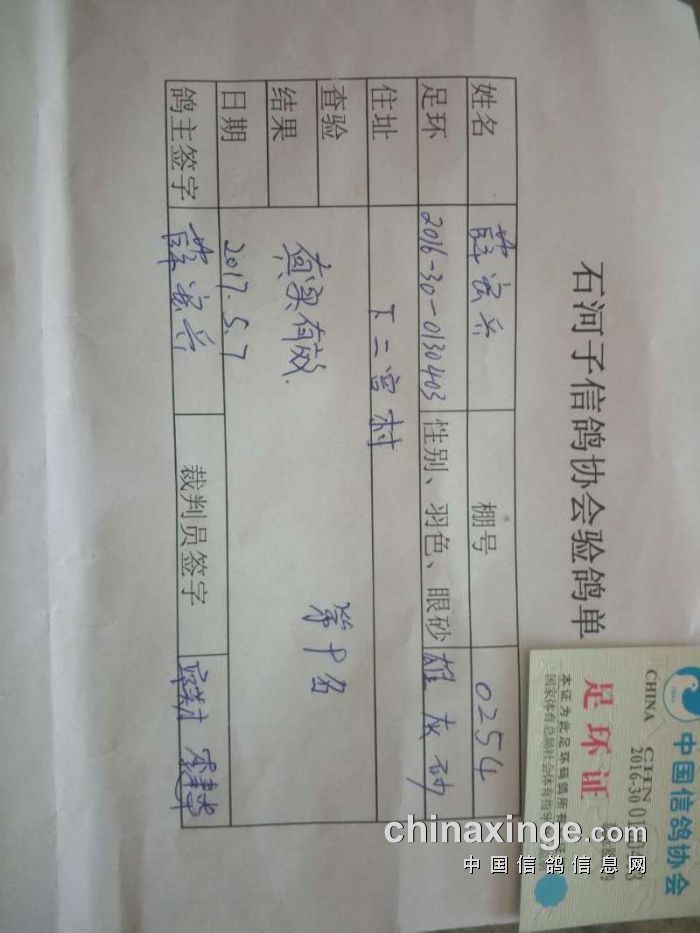 石河子信鸽协会验鸽单
姓名 薛宏兵 棚号 0254
足环 2016-30-0130403 性别、羽色、眼砂 雄 灰 砂
住址 下二宫村
查验
结果 真实有效.
第十名
日期 2017.5.7
鸽主签字 薛宏兵 裁判员签字
中国信鸽协会
CHINA CHN
2016-30
足环证
本证为此足环码鸽所有
国家体育总局社会体育指导
chinaxinge.com
中国信鸽信息网